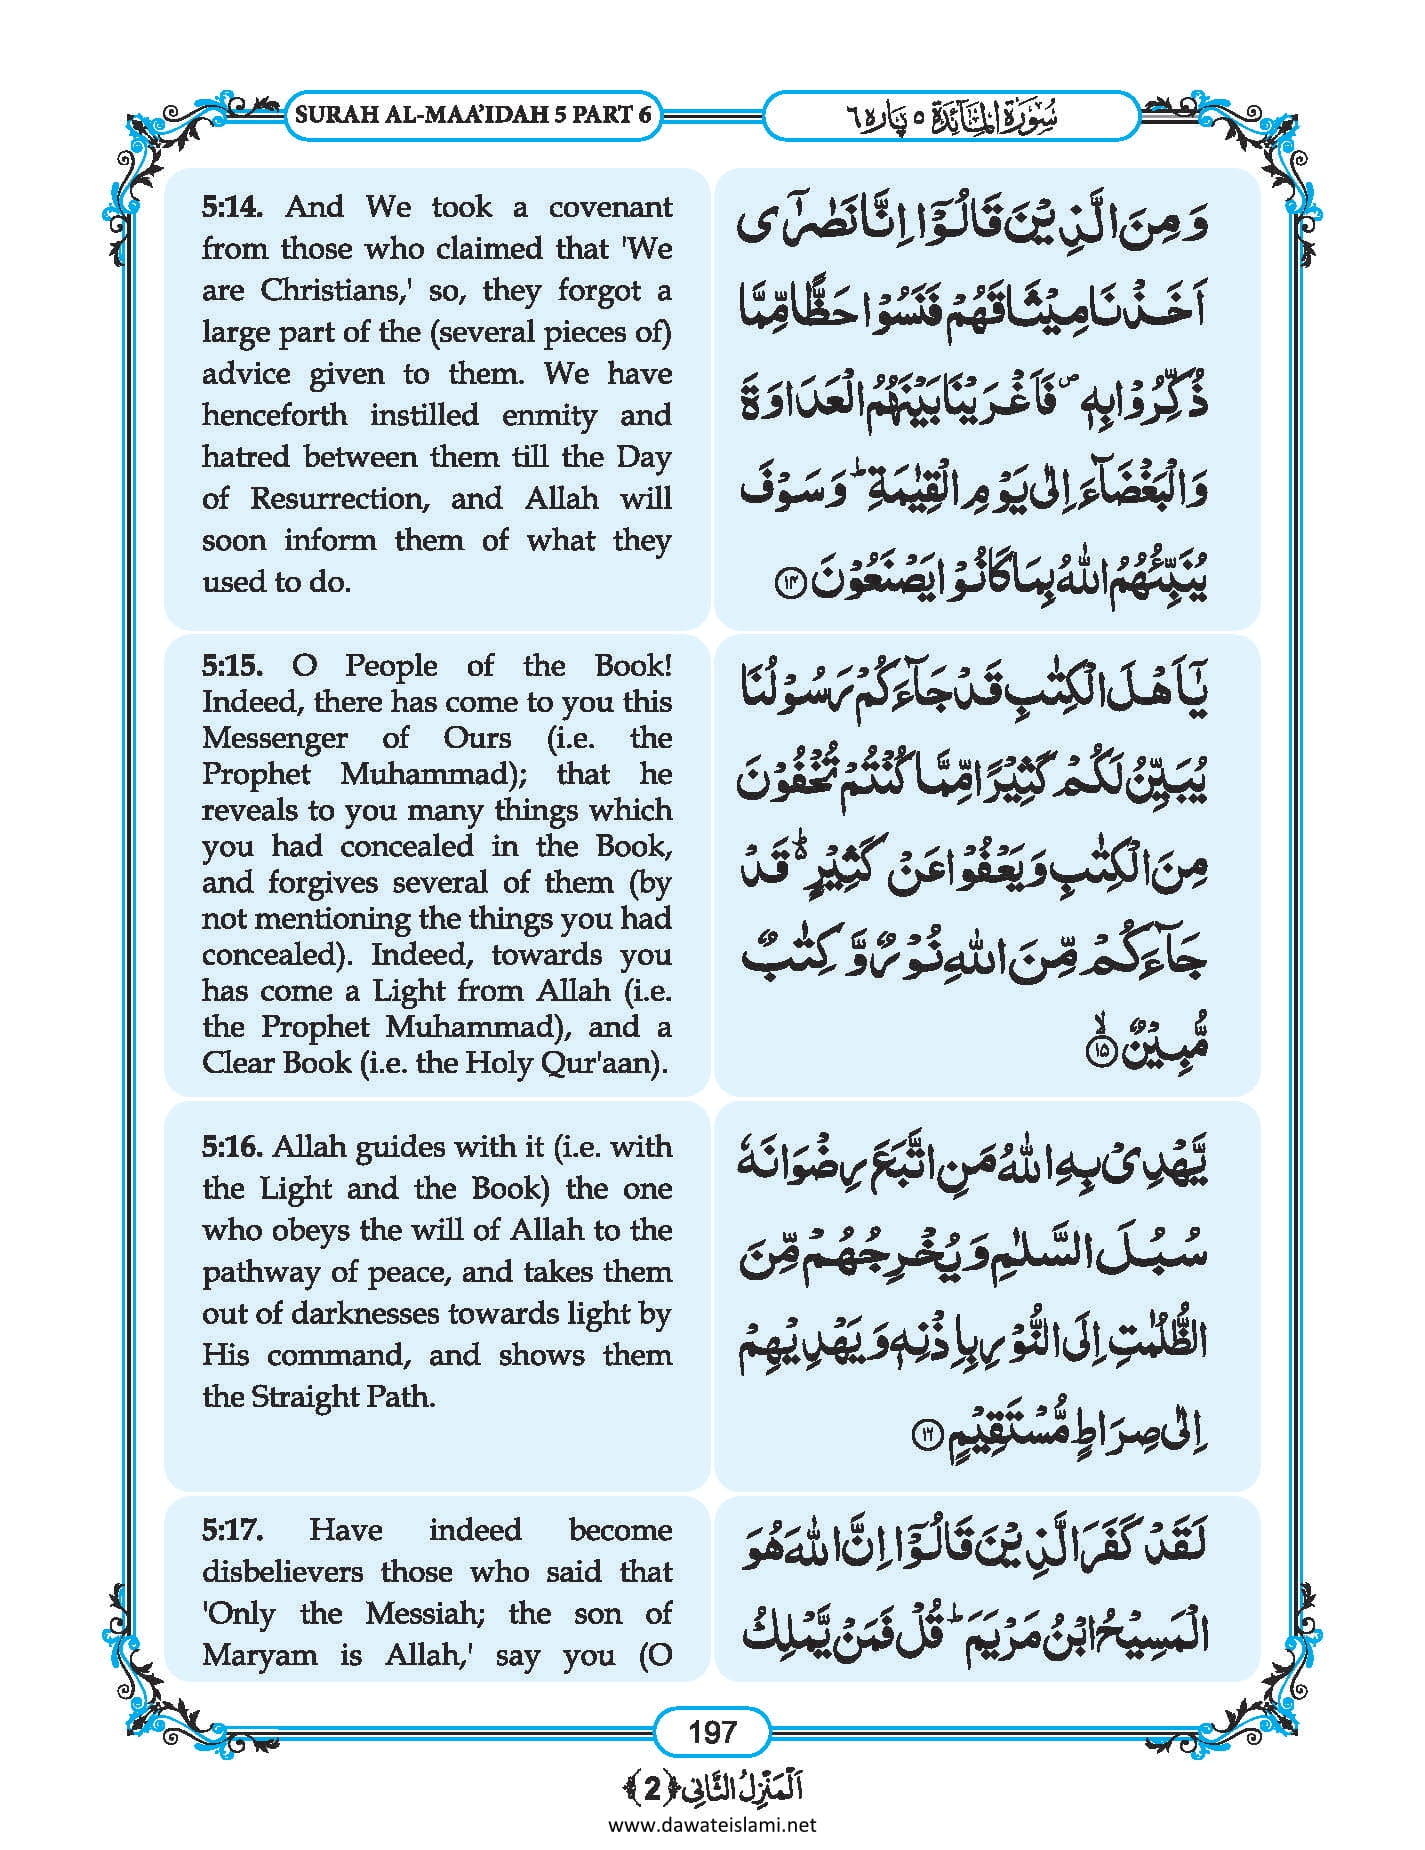 SURAH AL-MAA'IDAH 5 PART 6
سُوْرَةُ الْمَآئِدَة ٥ پَارہ ٦
5:14. And We took a covenant
from those who claimed that 'We
are Christians,' so, they forgot a
large part of the (several pieces of)
advice given to them. We have
henceforth instilled enmity and
hatred between them till the Day
of Resurrection, and Allah will
soon inform them of what they
used to do.
وَمِنَ الَّذِيْنَ قَالُوْۤا اِنَّا نَصٰرٰۤى
اَخَذْنَا مِيْثَاقَهُمْ فَنَسُوْا حَظًّا مِّمَّا
ذُكِّرُوْا بِهٖ ۪ فَاَغْرَيْنَا بَيْنَهُمُ الْعَدَاوَةَ
وَالْبَغْضَآءَ اِلٰى يَوْمِ الْقِيٰمَةِ ؕ وَسَوْفَ
يُنَبِّئُهُمُ اللّٰهُ بِمَا كَانُوْا يَصْنَعُوْنَ ﴿۱۴﴾
5:15. O People of the Book!
Indeed, there has come to you this
Messenger of Ours (i.e. the
Prophet Muhammad); that he
reveals to you many things which
you had concealed in the Book,
and forgives several of them (by
not mentioning the things you had
concealed). Indeed, towards you
has come a Light from Allah (i.e.
the Prophet Muhammad), and a
Clear Book (i.e. the Holy Qur'aan).
يٰۤاَهْلَ الْكِتٰبِ قَدْ جَآءَكُمْ رَسُوْلُنَا
يُبَيِّنُ لَكُمْ كَثِيْرًا مِّمَّا كُنْتُمْ تُخْفُوْنَ
مِنَ الْكِتٰبِ وَيَعْفُوْا عَنْ كَثِيْرٍ ؕ۬ قَدْ
جَآءَكُمْ مِّنَ اللّٰهِ نُوْرٌ وَّ كِتٰبٌ
مُّبِيْنٌ ﴿ۙ۱۵﴾
5:16. Allah guides with it (i.e. with
the Light and the Book) the one
who obeys the will of Allah to the
pathway of peace, and takes them
out of darknesses towards light by
His command, and shows them
the Straight Path.
يَّهْدِيْ بِهِ اللّٰهُ مَنِ اتَّبَعَ رِضْوَانَهٗ
سُبُلَ السَّلٰمِ وَيُخْرِجُهُمْ مِّنَ
الظُّلُمٰتِ اِلَى النُّوْرِ بِاِذْنِهٖ وَيَهْدِيْهِمْ
اِلٰى صِرَاطٍ مُّسْتَقِيْمٍ ﴿۱۶﴾
5:17. Have indeed become
disbelievers those who said that
'Only the Messiah; the son of
Maryam is Allah,' say you (O
لَقَدْ كَفَرَ الَّذِيْنَ قَالُوْۤا اِنَّ اللّٰهَ هُوَ
الْمَسِيْحُ ابْنُ مَرْيَمَ ؕ قُلْ فَمَنْ يَّمْلِكُ
197
اَلْمَنْزِلُ الثَّانِي ﴿2﴾
www.dawateislami.net